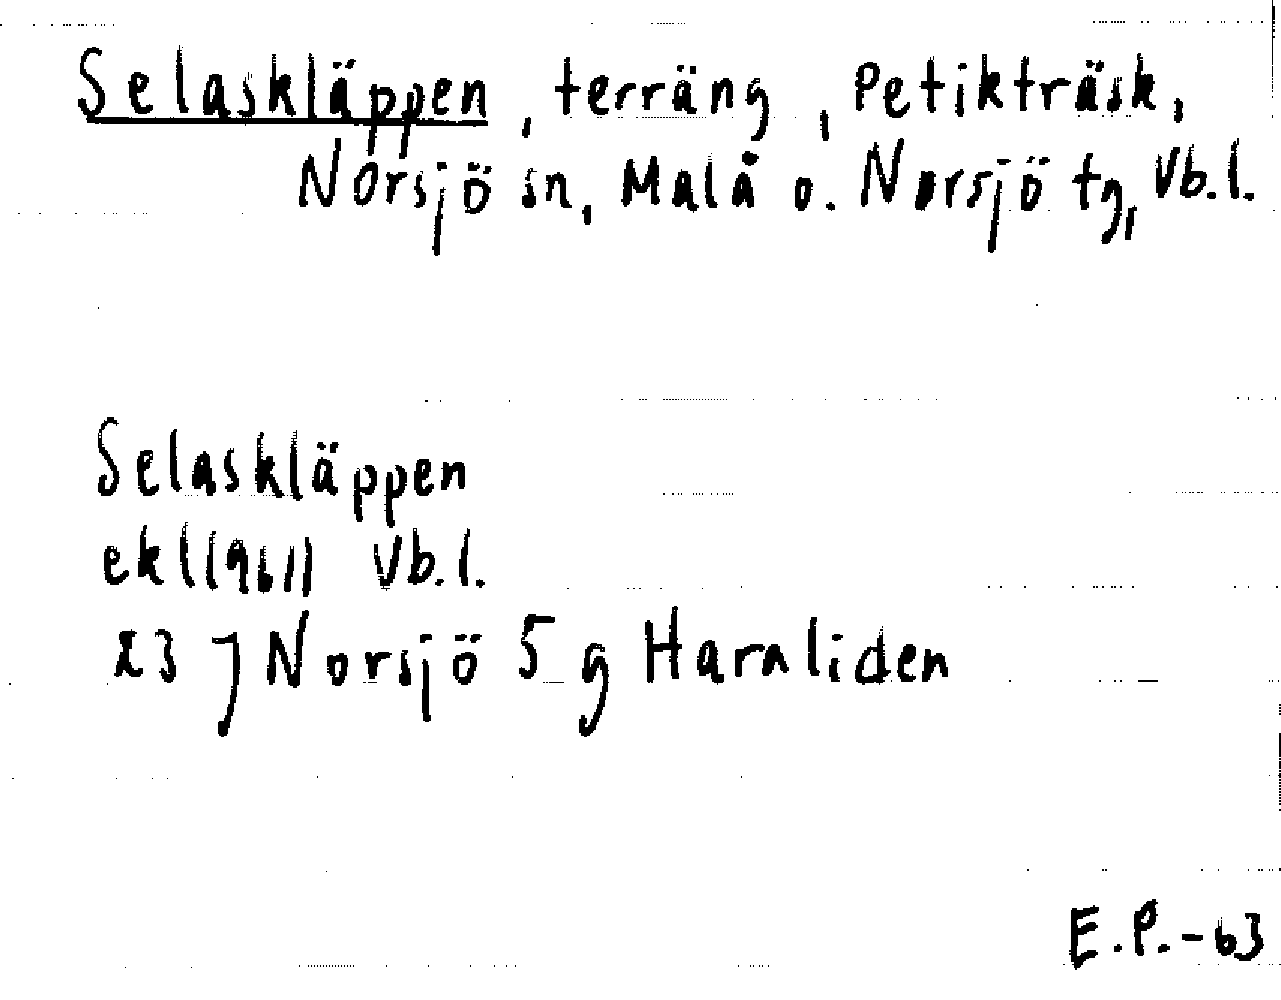 Selaskläppen, terräng, Petikträsk,
Norsjö sn, Malå o. Norsjö tg, Vb.l.
Selaskläppen
ekl(1961) Vb.l.
23 J Norsjö 5 g Harnliden
E.P.-63